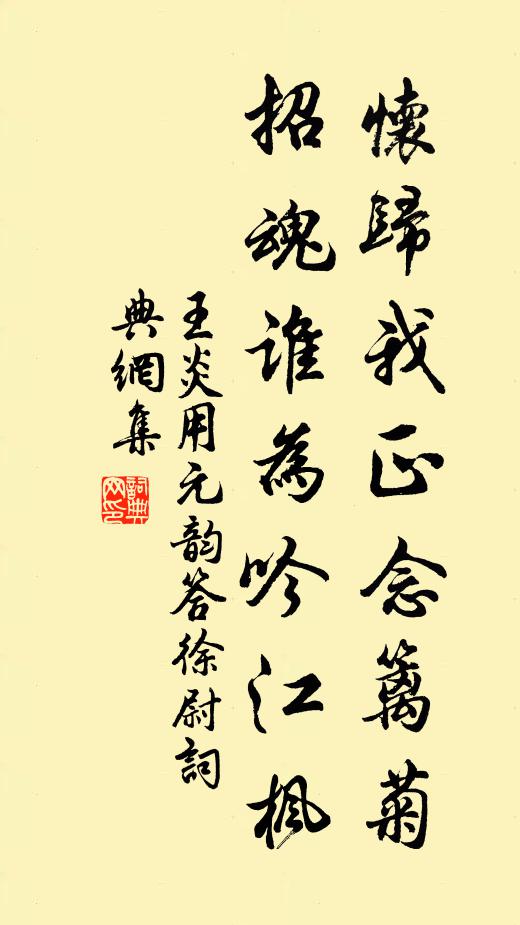 懷歸我正念籬菊
招魂誰為吟江楓
王炎用元韵答徐尉詞
典網集
詞典网印